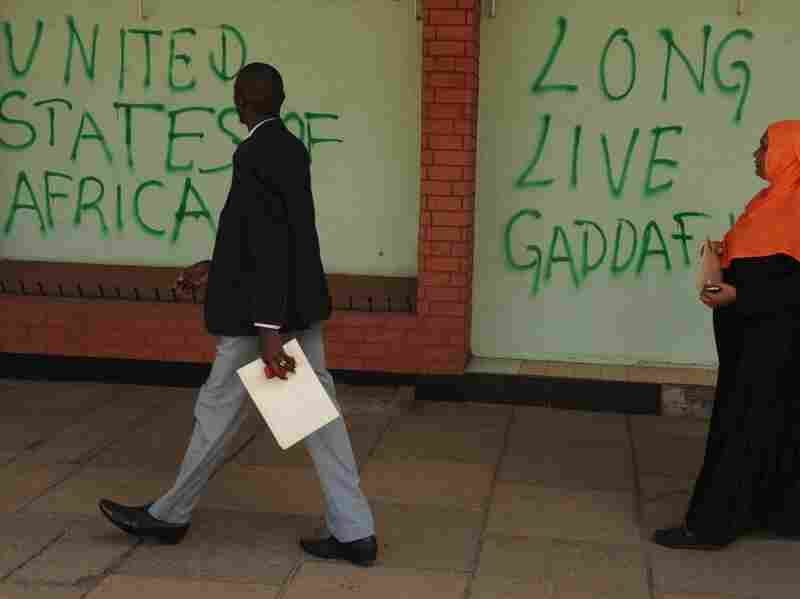 UNITED
STATES OF
AFRICA
LONG
LIVE
GADDAF